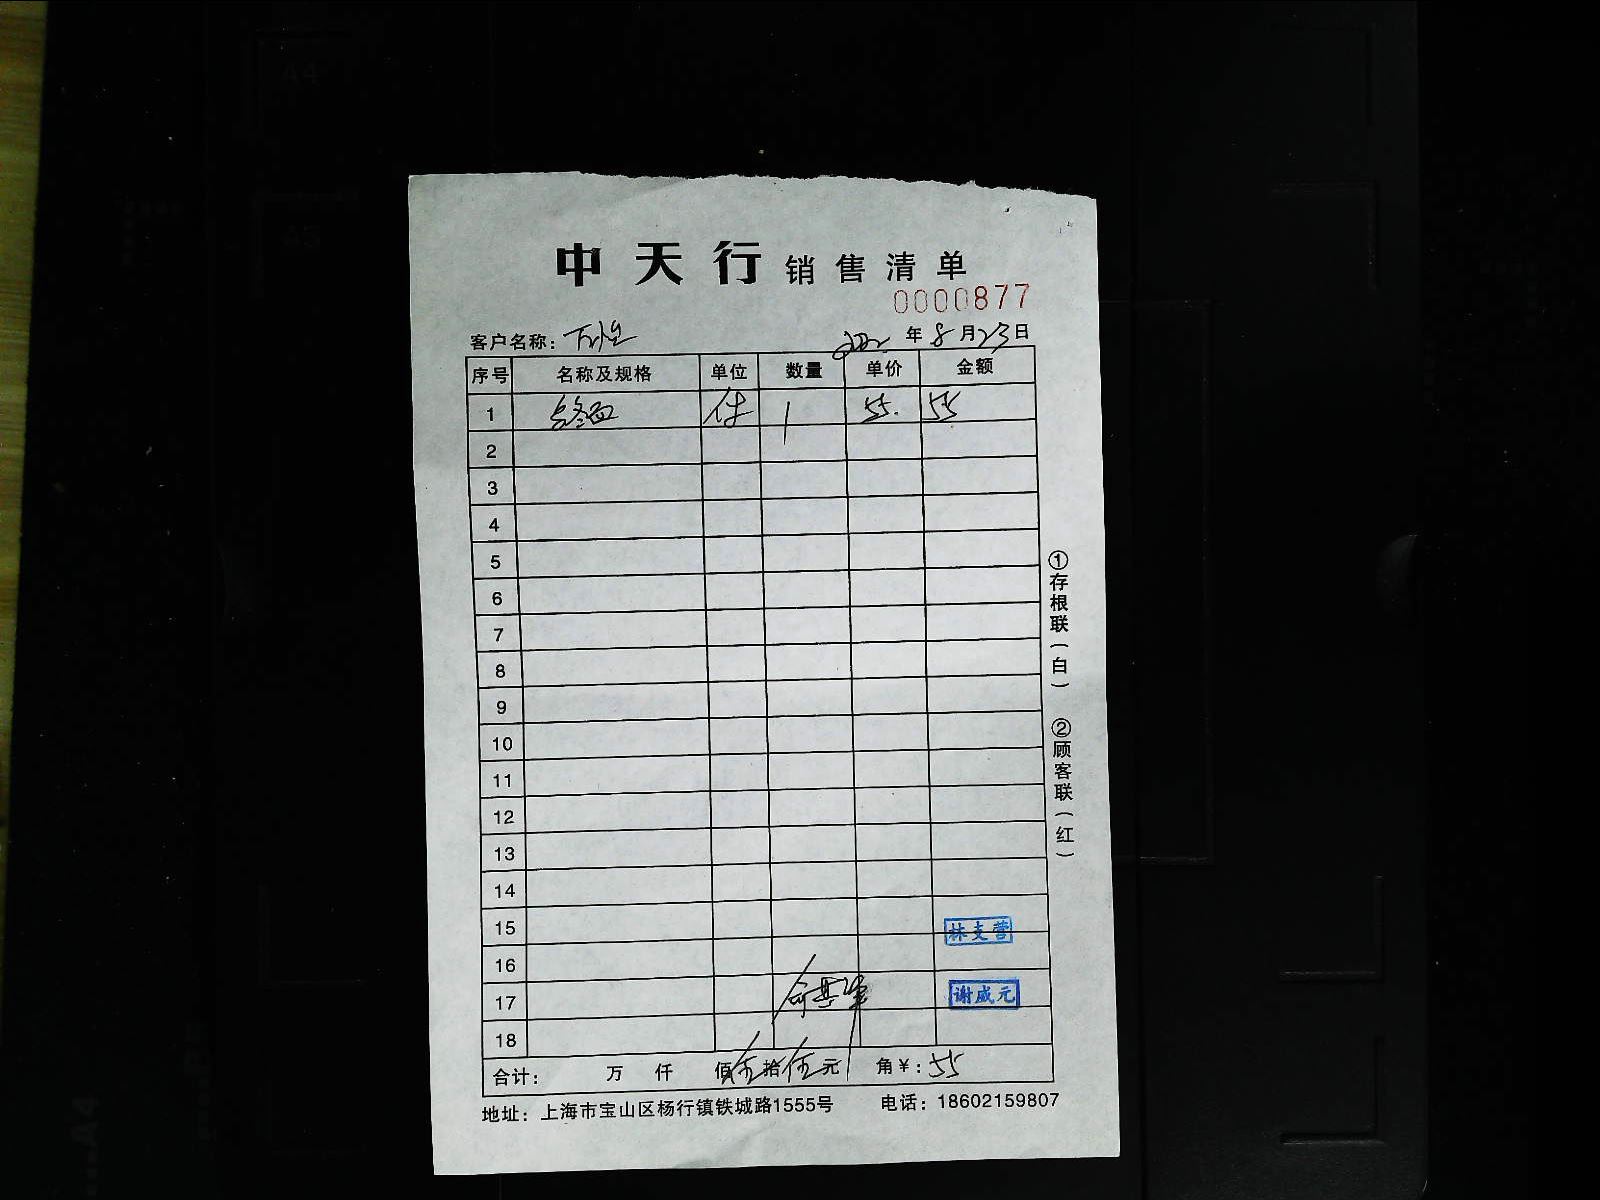 中天行 销售清单
0000877
客户名称： 年8月23日
序号 名称及规格 单位 数量 单价 金额
1 件 1 55. 55
2
3
4
5
6
7
8
9
10
11
12
13
14
15 林支营
16
17 谢威元
18
合计： 万 仟 佰伍拾伍元 角￥：55
地址：上海市宝山区杨行镇铁城路1555号 电话：18602159807
①存根联（白） ②顾客联（红）